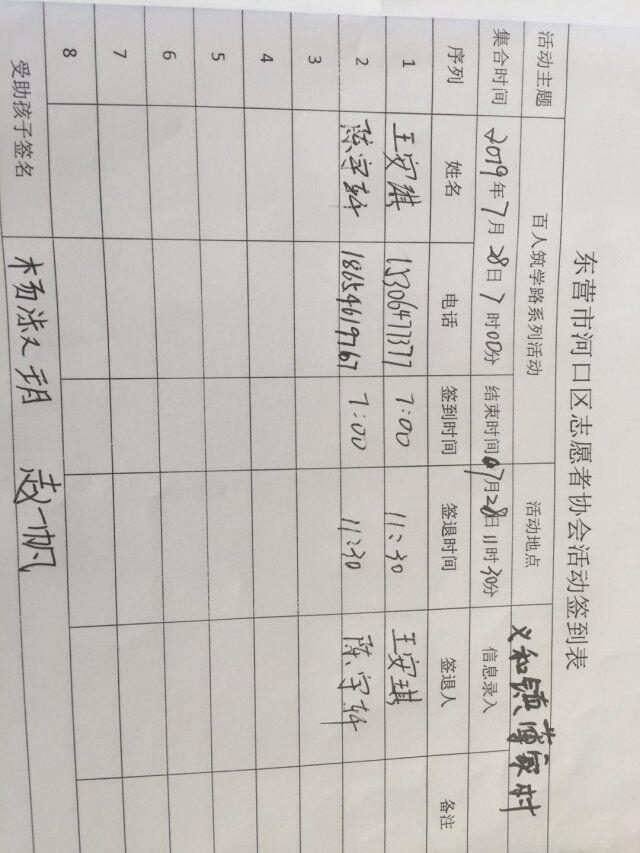 东营市河口区志愿者协会活动签到表
活动主题 百人筑学路系列活动 活动地点 义和镇薄家村
集合时间 2019年7月28日7时00分 结束时间 07月28日11时30分 信息录入
序列 姓名 电话 签到时间 签退时间 签退人 备注
1 王安琪 15306477377 7:00 11:30 王安琪
2 陈宇轩 18654619767 7:00 11:30 陈宇轩
3
4
5
6
7
8
受助孩子签名 杨 赵一帆